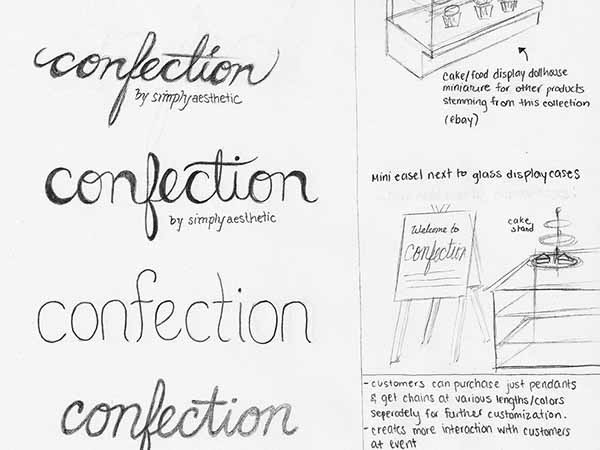 confection
by simplyaesthetic
confection
by simplyaesthetic
confection
confection
cake/food display dollhouse
miniature for other products
stemming from this collection
(ebay)
Mini easel next to glass display cases
Welcome to
Confection
cake
stand
- customers can purchase just pendants
& get chains at various lengths/colors
seperately for further customization.
- creates more interaction with customers
at event